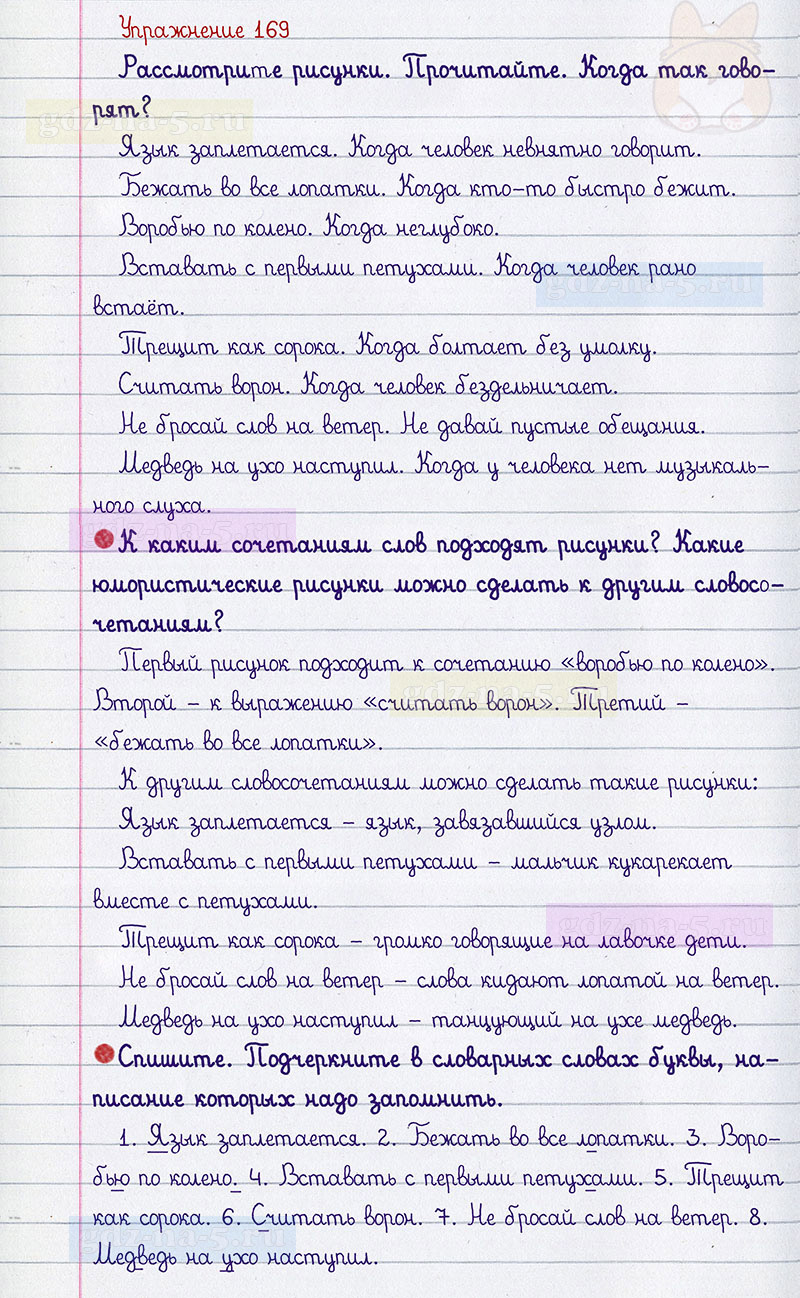 Упражнение 169
Рассмотрите рисунки. Прочитайте. Когда так гово-
рят?
gdz-na-5.ru
Язык заплетается. Когда человек невнятно говорит.
Бежать во все лопатки. Когда кто-то быстро бежит.
Воробью по колено. Когда неглубоко.
Вставать с первыми петухами. Когда человек рано
gdz-na-5.ru
встаёт.
Трещит как сорока. Когда болтает без умолку.
Считать ворон. Когда человек бездельничает.
Не бросай слов на ветер. Не давай пустые обещания.
Медведь на ухо наступил. Когда у человека нет музыкаль-
ного слуха.
gdz-na-5.ru
К каким сочетаниям слов подходят рисунки? Какие
юмористические рисунки можно сделать к другим словосо-
четаниям?
Первый рисунок подходит к сочетанию «воробью по колено».
gdz-na-5.ru
Второй – к выражению «считать ворон». Третий –
«бежать во все лопатки».
К другим словосочетаниям можно сделать такие рисунки:
Язык заплетается – язык, завязавшийся узлом.
Вставать с первыми петухами – мальчик кукарекает
вместе с петухами.
gdz-na-5.ru
Трещит как сорока – громко говорящие на лавочке дети.
Не бросай слов на ветер – слова кидают лопатой на ветер.
Медведь на ухо наступил – танцующий на ухе медведь.
Спишите. Подчеркните в словарных словах буквы, на-
писание которых надо запомнить.
1. Язык заплетается. 2. Бежать во все лопатки. 3. Воро-
бью по колено. 4. Вставать с первыми петухами. 5. Трещит
как сорока. 6. Считать ворон. 7. Не бросай слов на ветер. 8.
gdz-na-5.ru
Медведь на ухо наступил.